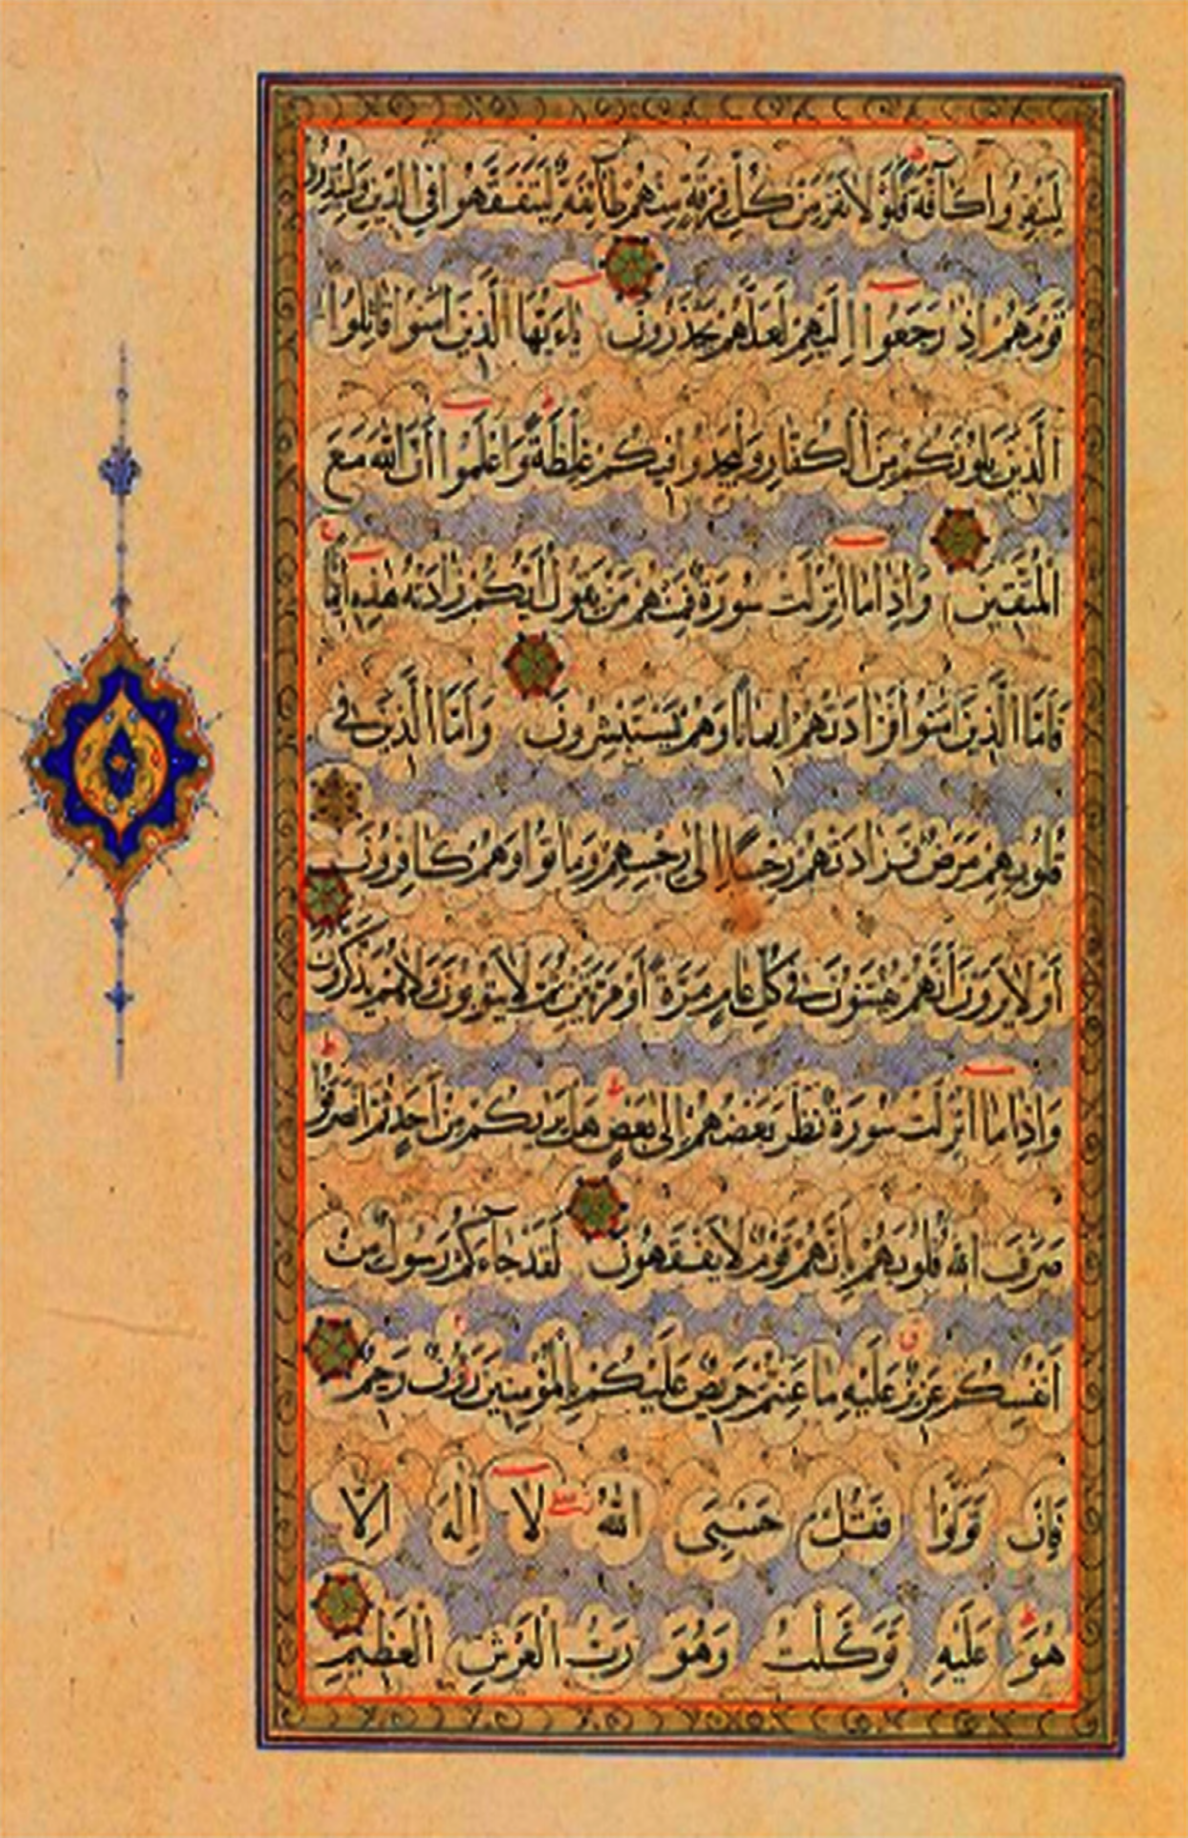 لِيَنْفِرُوا كَآفَّةً فَلَوْلَا نَفَرَ مِنْ كُلِّ فِرْقَةٍ مِنْهُمْ طَآئِفَةٌ لِيَتَفَقَّهُوا فِي الدِّينِ وَلِيُنْذِرُوا
قَوْمَهُمْ إِذَا رَجَعُوا إِلَيْهِمْ لَعَلَّهُمْ يَحْذَرُونَ يَاءَيُّهَا الَّذِينَ آمَنُوا قَاتِلُوا
الَّذِينَ يَلُونَكُمْ مِنَ الْكُفَّارِ وَلْيَجِدُوا فِيكُمْ غِلْظَةً وَاعْلَمُوا أَنَّ اللَّهَ مَعَ
الْمُتَّقِينَ وَإِذَا مَا أُنْزِلَتْ سُورَةٌ فَمِنْهُمْ مَنْ يَقُولُ أَيُّكُمْ زَادَتْهُ هَذِهِ إِيمَانًا
فَأَمَّا الَّذِينَ آمَنُوا فَزَادَتْهُمْ إِيمَانًا وَهُمْ يَسْتَبْشِرُونَ وَأَمَّا الَّذِينَ فِي
قُلُوبِهِمْ مَرَضٌ فَزَادَتْهُمْ رِجْسًا إِلَى رِجْسِهِمْ وَمَاتُوا وَهُمْ كَافِرُونَ
أَوَلَا يَرَوْنَ أَنَّهُمْ يُفْتَنُونَ فِي كُلِّ عَامٍ مَرَّةً أَوْ مَرَّتَيْنِ ثُمَّ لَا يَتُوبُونَ وَلَا هُمْ يَذَّكَّرُونَ
وَإِذَا مَا أُنْزِلَتْ سُورَةٌ نَظَرَ بَعْضُهُمْ إِلَى بَعْضٍ هَلْ يَرَاكُمْ مِنْ أَحَدٍ ثُمَّ انْصَرَفُوا
صَرَفَ اللَّهُ قُلُوبَهُمْ بِأَنَّهُمْ قَوْمٌ لَا يَفْقَهُونَ لَقَدْ جَآءَكُمْ رَسُولٌ مِنْ
أَنْفُسِكُمْ عَزِيزٌ عَلَيْهِ مَا عَنِتُّمْ حَرِيصٌ عَلَيْكُمْ بِالْمُؤْمِنِينَ رَؤُفٌ رَحِيمٌ
فَإِنْ تَوَلَّوْا فَقُلْ حَسْبِيَ اللَّهُ لَا إِلَهَ إِلَّا
هُوَ عَلَيْهِ تَوَكَّلْتُ وَهُوَ رَبُّ الْعَرْشِ الْعَظِيمِ